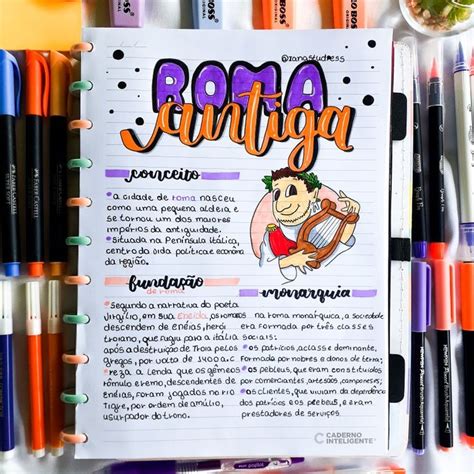 BOSS
ROMA
antiga
conceito
• a cidade de roma nasceu
como uma pequena aldeia e
se tornou um dos maiores
impérios da antiguidade.
• Situada na Península Itálica,
centro da vida política e economia
da região.
fundação
de roma
• segundo a narrativa do poeta
virgílio, em sua Eneida, os romanos
descendem de enéias, herói
troiano, que fugiu para a itália
após a destruição de Troia pelos
gregos, por volta de 1400 a.C
• reza a Lenda que os gêmeos
rômulo e remo, descendentes de
enéias, foram jogados no rio
Tigre, por ordem de amúlio,
usurpador do trono.
monarquia
na roma monárquica, a sociedade
era formada por três classes
sociais:
• os patrícios, a classe dominante,
formada por nobres e donos de terra;
• os plebeus, que eram constituídos
por comerciantes, artesãos, camponeses;
• os clientes, que viviam da dependência
dos patrícios e os plebeus, e eram
prestadores de serviços.
CADERNO
INTELIGENTE
FABER CASTELL